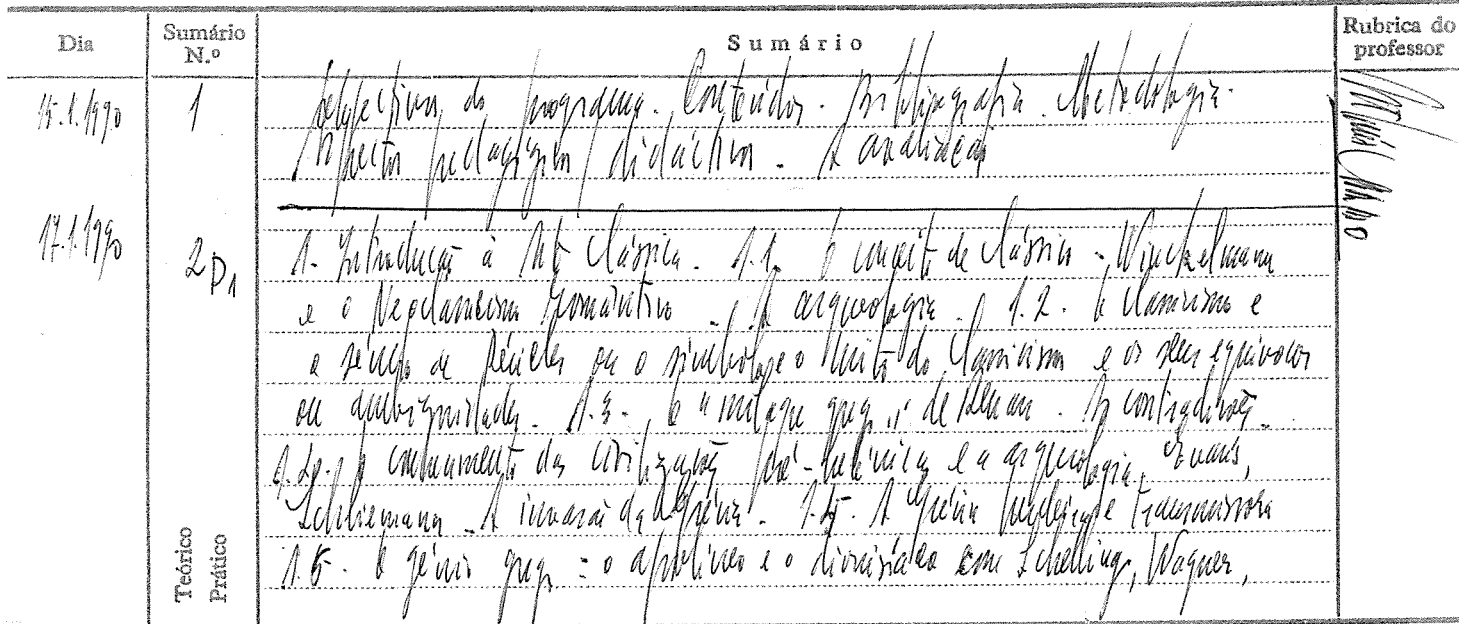 Dia Sumário N.º Sumário Rubrica do professor
15.1.1990 1 do programa. Conteúdos. Bibliografia. Metodologia.
Aspectos pedagógicos / didácticos. A avaliação
17.1.1990 2 P1 1. Introdução à Arte Clássica. 1.1. O conceito de Clássico - Winckelmann
e o Neoclassicismo romântico. A arqueologia. 1.2. O Classicismo e
o século de Péricles ou o símbolo e o mito do Classicismo e os seus equívocos
ou ambiguidades. 1.3. O "milagre grego" de Renan. As contradições.
O conhecimento das civilizações pré-helénicas e a arqueologia, Evans,
Schliemann. A invasão da Grécia. A Grécia e transmissora
1.5. O génio grego: o apolíneo e o dionisíaco com Schelling, Wagner,
Teórico
Prático